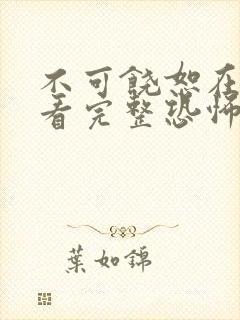 不可饶恕在
看完整恐怖
葉如錦